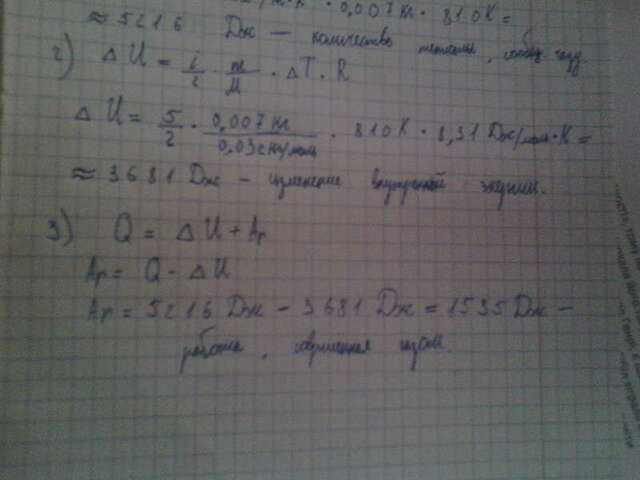 · 0,007 кг · 810 К =
≈ 5216 Дж — количество теплоты, сообщ. газу.
2) Δ U = i/2 · m/M · ΔT · R
Δ U = 5/2 · 0,007 кг / 0,032 кг/моль · 810 К · 8,31 Дж/моль·К =
≈ 3681 Дж – изменение внутренней энергии.
3) Q = Δ U + Ap
Ap = Q - Δ U
Ap = 5216 Дж – 3681 Дж = 1535 Дж –
работа, совершённая газом.